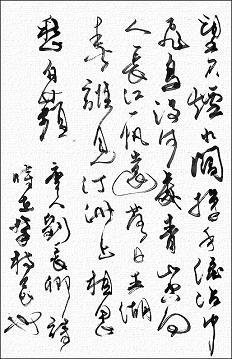 望君煙水闊揮手淚沾巾
飛鳥沒何處青山空向
人長江一帆遠落日五湖
春誰見汀洲上相思
愁白蘋
唐人劉長卿詩